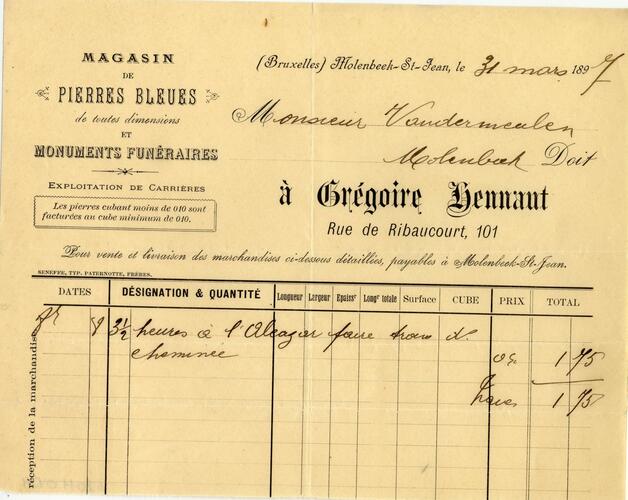 MAGASIN
DE
PIERRES BLEUES
de toutes dimensions
ET
MONUMENTS FUNÉRAIRES
EXPLOITATION DE CARRIÈRES
Les pierres cubant moins de 010 sont
facturées au cube minimum de 010.
(Bruxelles) Molenbeek-St-Jean, le 31 mars 1897
Monsieur Vandermeulen
Molenbeek Doit
à Grégoire Hennaut
Rue de Ribaucourt, 101
Pour vente et livraison des marchandises ci-dessous détaillées, payables à Molenbeek-St-Jean.
SENEFFE, TYP. PATERNOTTE, FRÈRES.
DATES DÉSIGNATION & QUANTITÉ Longueur Largeur Epaisr Longr totale Surface CUBE PRIX TOTAL
8 3 1/2 heures à l'Alcazar faire trous
cheminée 1 75
1 75
réception de la marchandise